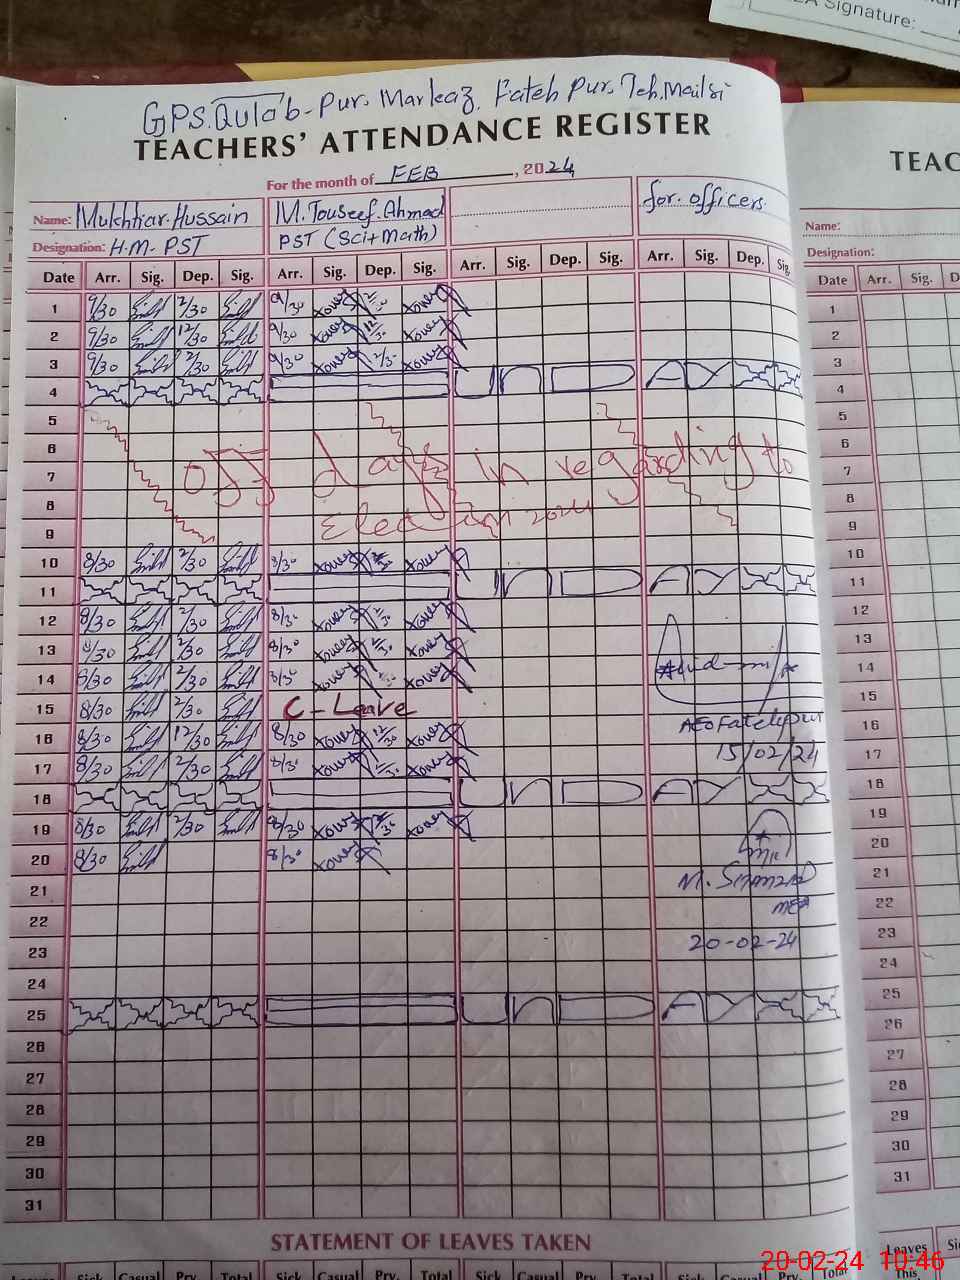 EA Signature:
GPS. Qulab-Pur. Markaz. Fateh Pur. Teh. Mailsi
TEACHERS' ATTENDANCE REGISTER
For the month of FEB, 2024
Name: Mukhtiar Hussain M. Touseef. Ahmad for. officers.
Designation: H.M. PST PST (Sci+Math)
Date Arr. Sig. Dep. Sig. Arr. Sig. Dep. Sig. Arr. Sig. Dep. Arr. Sig. Dep. Sig.
1 9/30 2/30 9/30 2/30
2 9/30 12/30 9/30 12/30
3 9/30 2/30 9/30 2/30
4 SUNDAY
5
6
7 Off days in regarding to
8 Election 2024
9
10 8/30 2/30 8/30 2/30
11 SUNDAY
12 8/30 2/30 8/30 2/30
13 8/30 2/30 8/30 2/30
14 8/30 2/30 8/30
15 8/30 2/30 C-Leave
16 8/30 12/30 8/30 12/30 AEO Fatehpur
17 8/30 2/30 8/30 2/30 15/02/24
18 SUNDAY
19 8/30 2/30 8/30 2/30
20 8/30 8/30
21
22 MEA
23 20-02-24
24
25 SUNDAY
26
27
28
29
30
31
STATEMENT OF LEAVES TAKEN
Sick Casual Prv. Total Sick Casual Prv. Total Sick Casual Prv. Total
TEAC
Name:
Designation:
Date Arr. Sig. D
1
2
3
4
5
6
7
8
9
10
11
12
13
14
15
16
17
18
19
20
21
22
23
24
25
26
27
28
29
30
31
Leaves
This
20-02-24 10:46